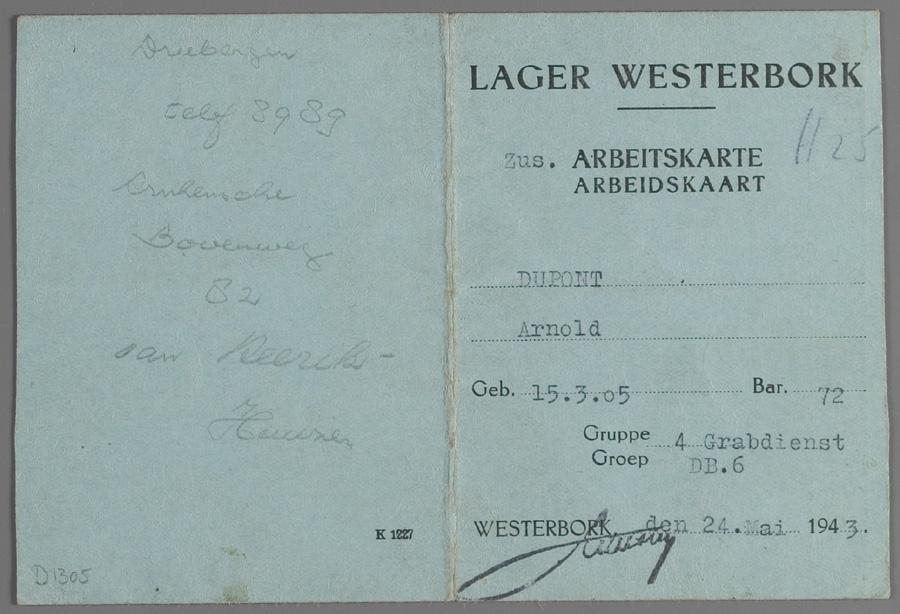 Driebergen
telf 8989
Arnhemsche
Bovenweg
82
van
K 1227
D1305
LAGER WESTERBORK
1125
Zus. ARBEITSKARTE
ARBEIDSKAART
DUPONT
Arnold
Geb. 15.3.05 Bar. 72
Gruppe 4 Grabdienst
Groep DB.6
WESTERBORK, den 24. Mai 1943.